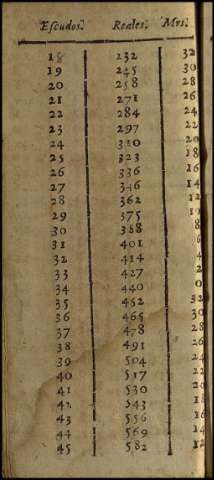 Escudos. Reales. Mrs.
18 232 32
19 245 30
20 258 28
21 271 26
22 284 24
23 297 22
24 310 20
25 323 18
26 336 16
27 346 14
28 362 12
29 375 10
30 388 8
31 401 6
32 414 4
33 427 2
34 440 0
35 452 32
36 465 30
37 478 28
38 491 26
39 504 24
40 517 22
41 530 20
42 543 18
43 556 16
44 569 14
45 582 12